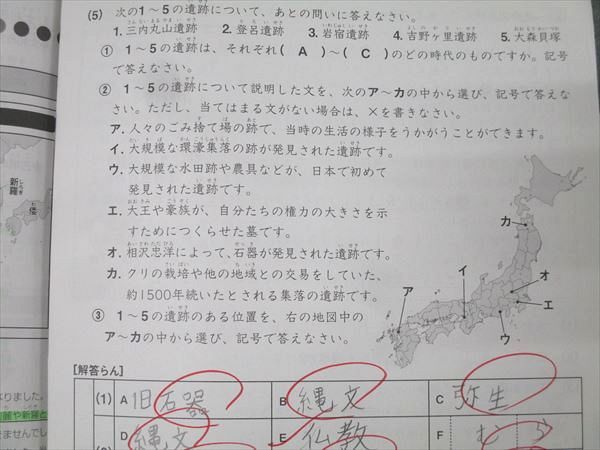 (5) 次の1～5の遺跡について、あとの問いに答えなさい。
1.三内丸山遺跡 2.登呂遺跡 3.岩宿遺跡 4.吉野ヶ里遺跡 5.大森貝塚
① 1～5の遺跡は、それぞれ( A )～( C )のどの時代のものですか。記号
で答えなさい。
② 1～5の遺跡について説明した文を、次のア～カの中から選び、記号で答えな
さい。ただし、当てはまる文がない場合は、×を書きなさい。
ア.人々のごみ捨て場の跡で、当時の生活の様子をうかがうことができます。
イ.大規模な環濠集落の跡が発見された遺跡です。
ウ.大規模な水田跡や農具などが、日本で初めて
発見された遺跡です。
エ.大王や豪族が、自分たちの権力の大きさを示
すためにつくらせた墓です。
オ.相沢忠洋によって、石器が発見された遺跡です。
カ.クリの栽培や他の地域との交易をしていた、
約1500年続いたとされる集落の遺跡です。
③ 1～5の遺跡のある位置を、右の地図中の
ア～カの中から選び、記号で答えなさい。
カ
オ
エ
イ
ア
ウ
新羅
倭
[解答らん]
(1) A 旧石器 B 縄文 C 弥生
D 縄文 E 仏教 F む ら